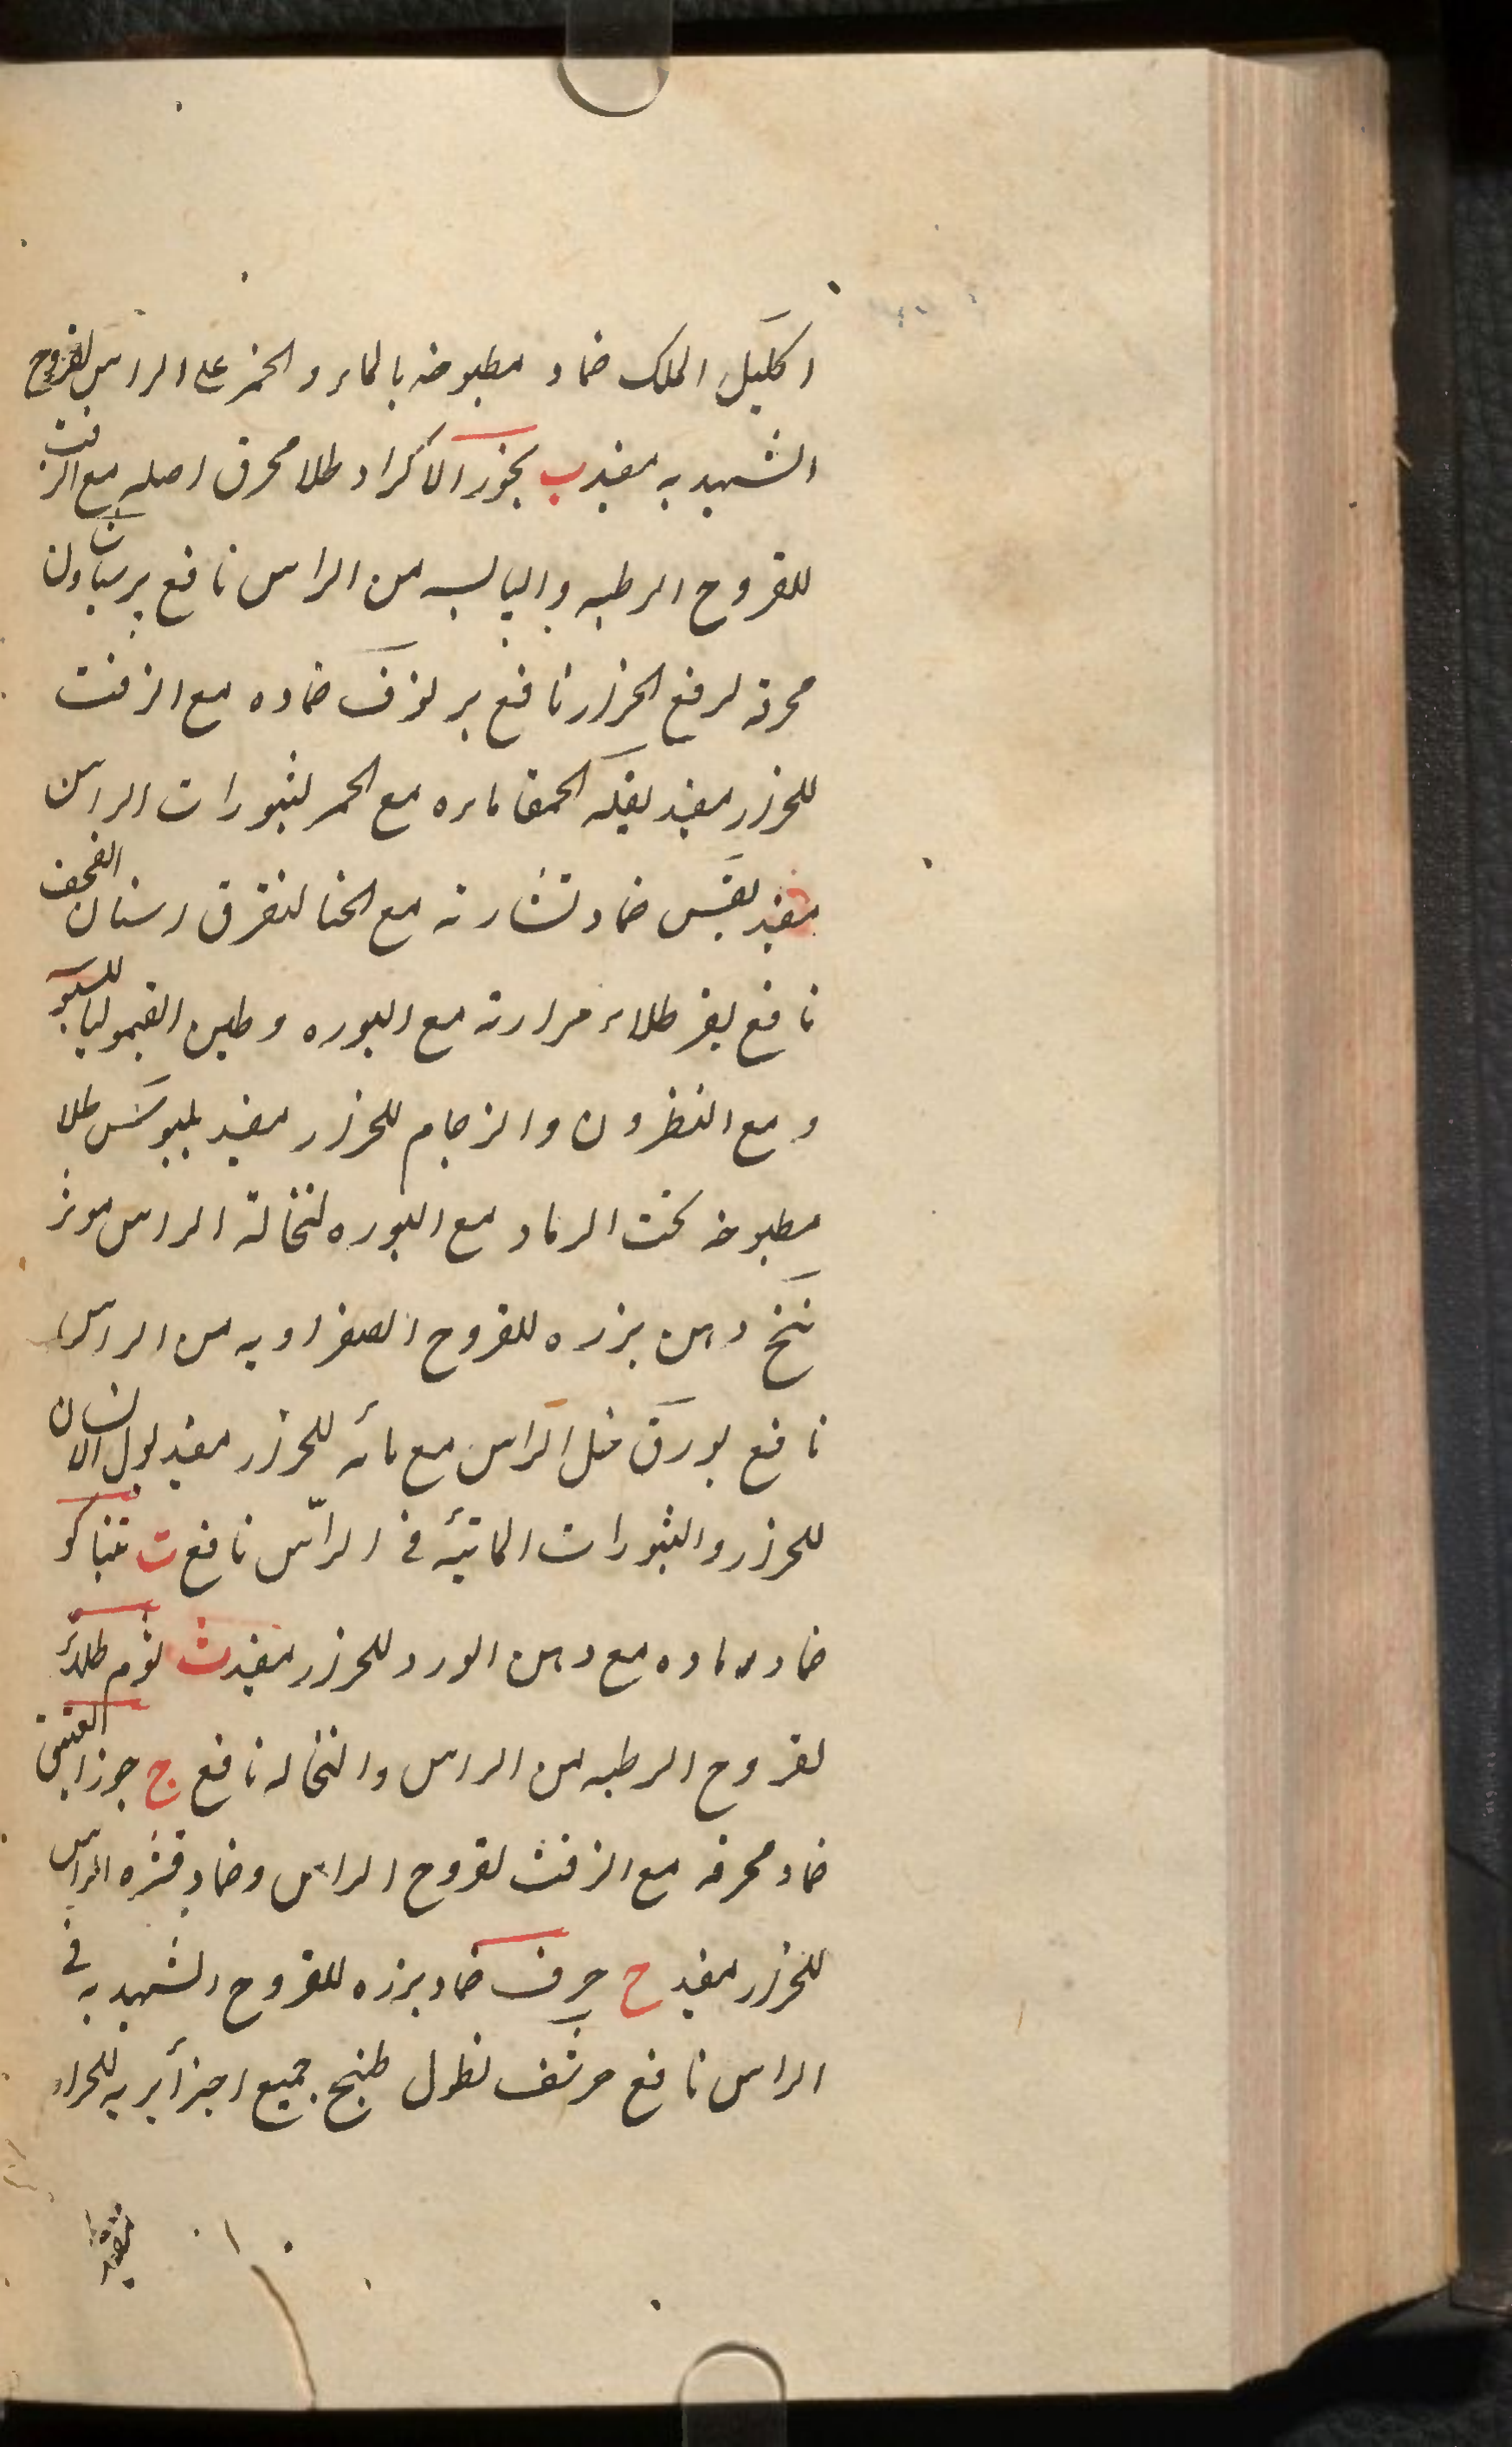 اکلیل الملک ضماد مطبوخه بالماء و الخمر علی الراس لقروح
الشهدیه مفید ب بخور الاکراد طلا محرق اصله مع الزفت
للقروح الرطبه و الیابسه من الراس نافع برسیاوشان
محرقه لرفع الحزاز نافع بر نوف ضماده مع الزفت
للحزاز مفید بقلة الحمقا ماءه مع الخمر لبثورات الراس
مفید بقس ضماد نشارته مع الحنا لتفرق اسنان القحف
نافع بقر طلاء مرارته مع البوره و طین القیمولیا للسبو
و مع النطرون و الزجاج للحزاز مفید بلبوس طلا
مطبوخه تحت الرماد مع البوره لنخالة الراس موثر
بنج دهن بزره للقروح الصفراویه من الراس
نافع بورق غسل الراس مع مائه للحزاز مفید بول الانسان
للحزاز و البثورات المائیه فی الراس نافع ت تنباکو
ضماد رماده مع دهن الورد للحزاز مفید ث ثوم طلاء
لقروح الرطبه من الراس و النخاله نافع ج جوز العتیق
ضماد محرقه مع الزفت لقروح الراس و ضماد قشره الراس
للحزاز مفید ح حرف ضماد بزره للقروح الشهدیه فی
الراس نافع حرشف نطول طبیخ جمیع اجزائیه للحزاز